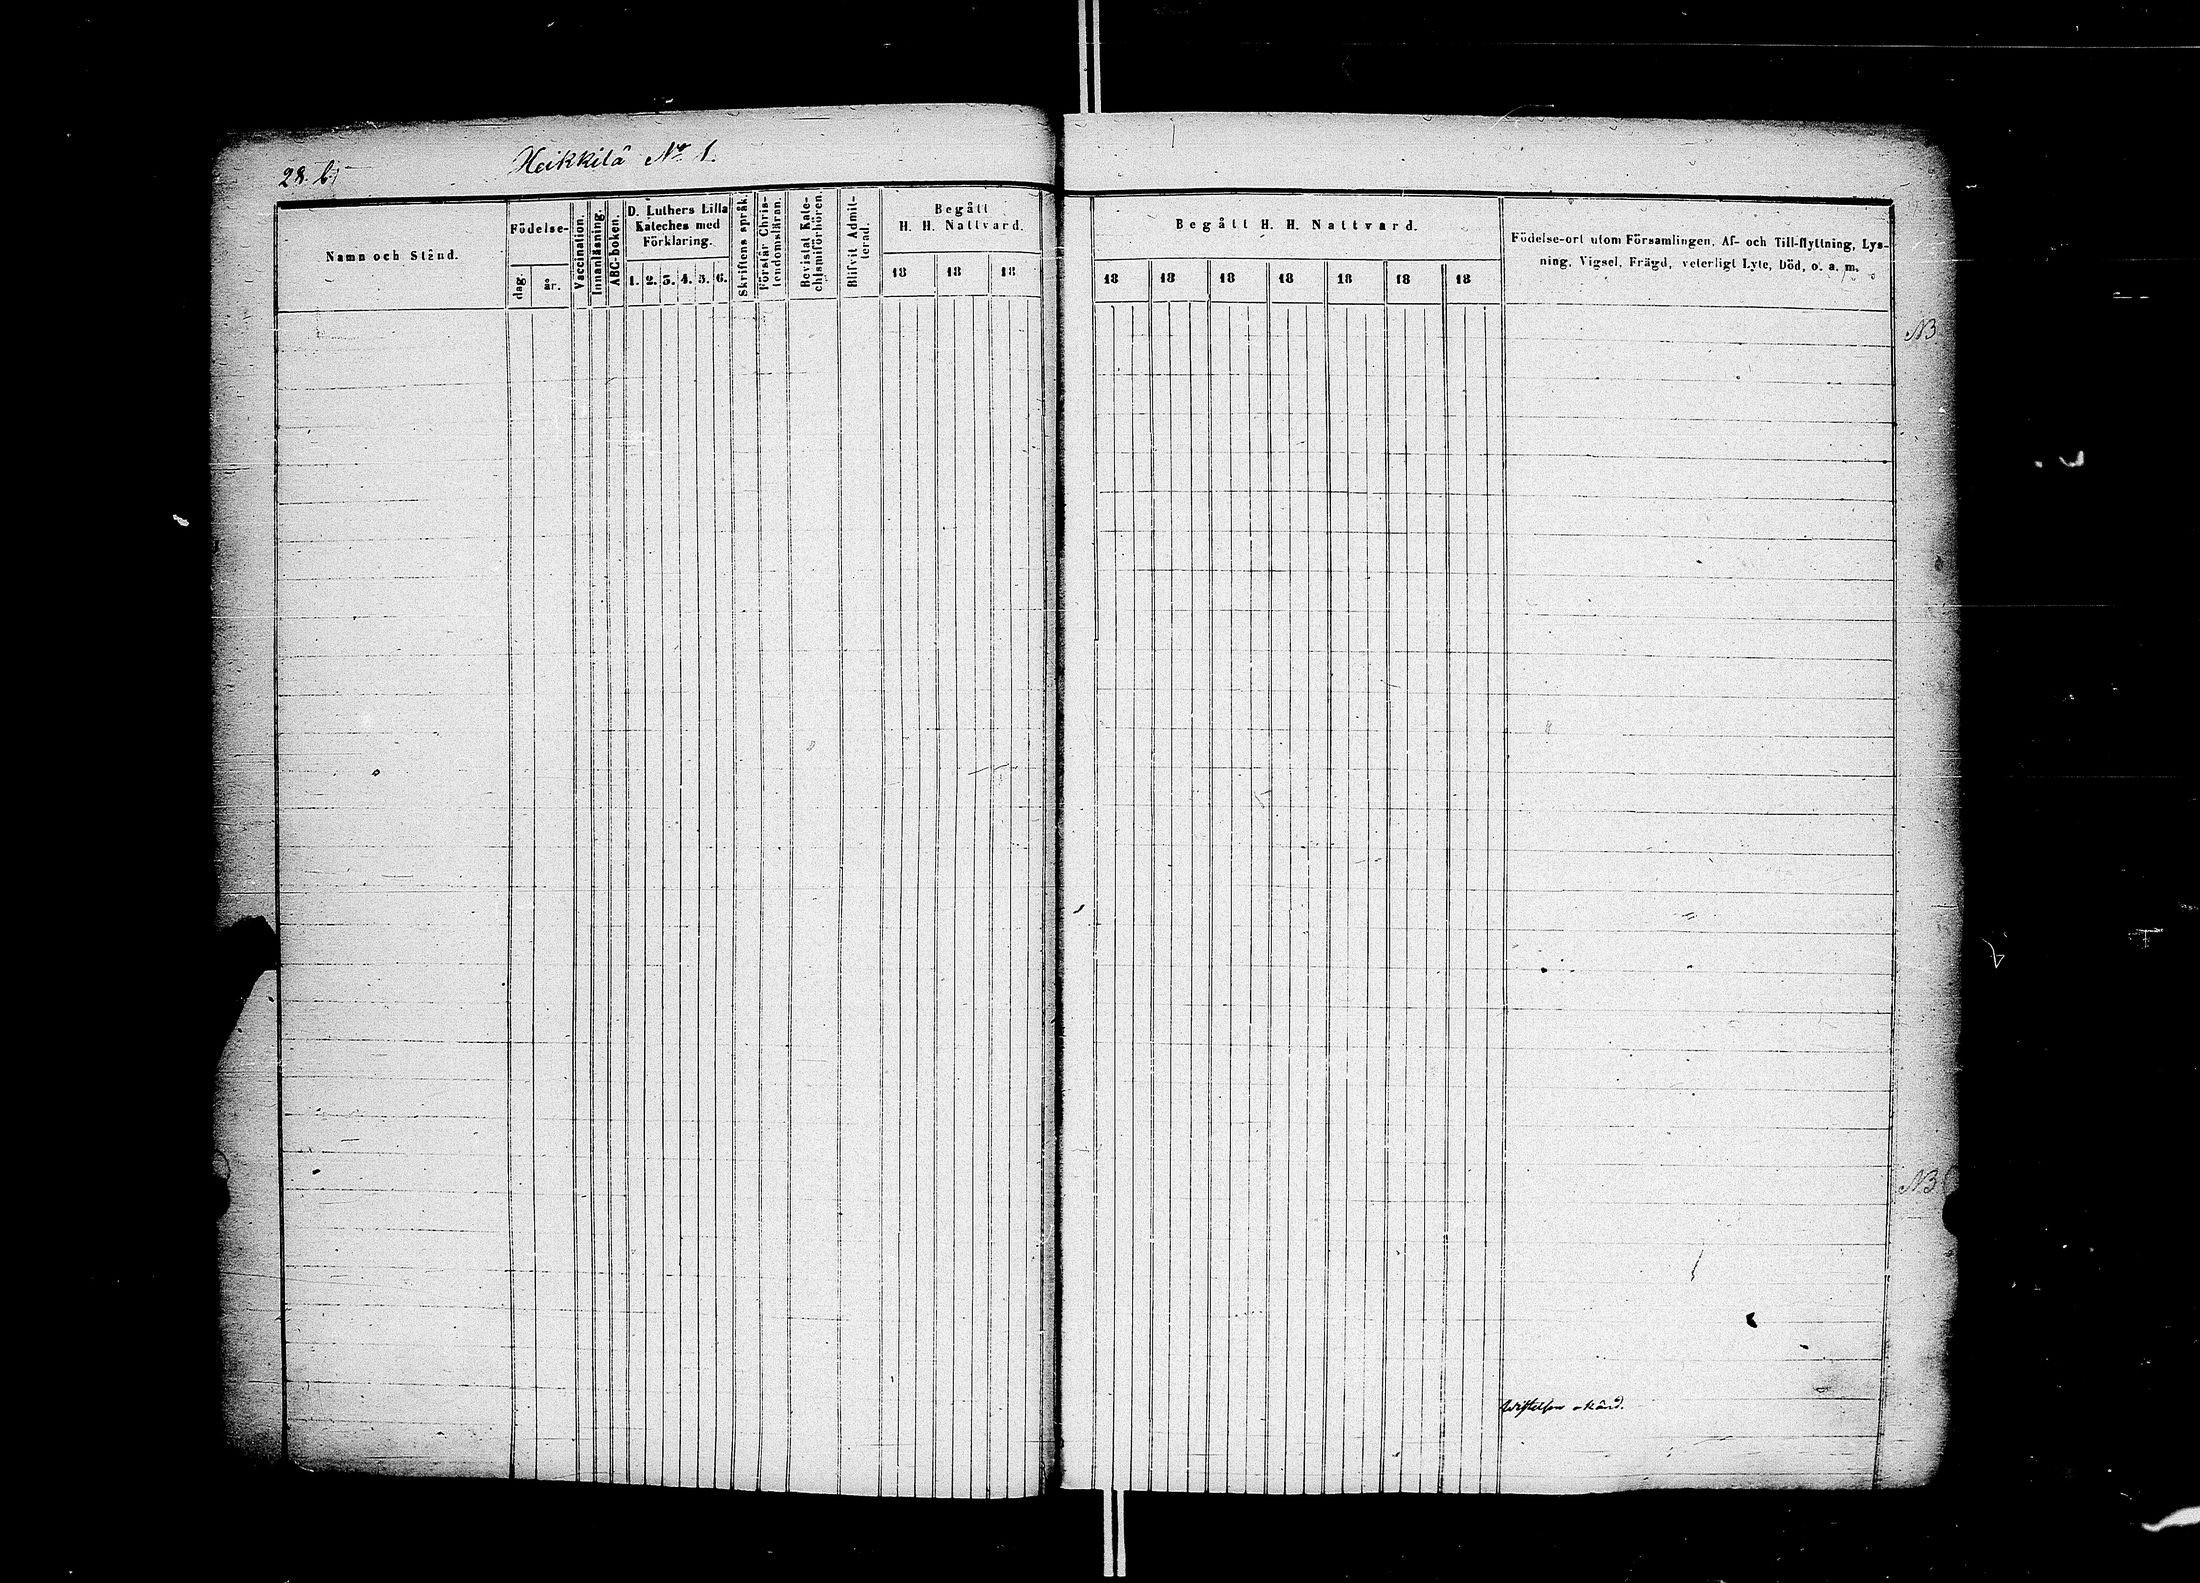 28. b.
Heikkilä No 1.
Namn och Stånd.
Födelse-
dag.
år.
Vaccination.
Innanläsning.
ABC-boken.
D. Luthers Lilla
Kateches med
Förklaring.
1. 2. 3. 4. 5. 6.
Skriftens språk.
Förstår Chris-
tendomsläran.
Bevistat Kate-
chismiförhören.
Blifvit Admit-
terad.
Begått
H. H. Nattvard.
18 18 18
Begått H. H. Nattvard.
18 18 18 18 18 18 18
Födelse-ort utom Församlingen, Af- och Till-flyttning, Lys-
ning, Vigsel, Frägd, veterligt Lyte, Död, o. a. m.
NB
NB